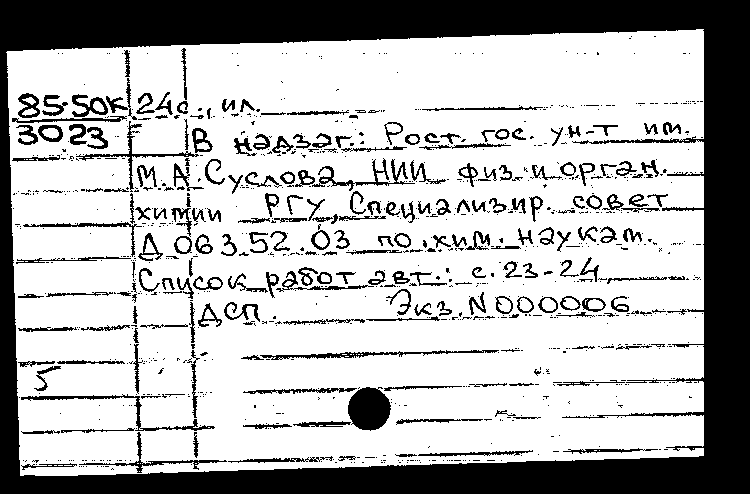 85-50К 24с., ил.
3023 В надзаг.: Рост. гос. ун-т им.
М.А.Суслова, НИИ физ. и орган.
химии РГУ, Специализир. совет
Д 063.52.03 по хим. наукам.
Список работ авт.: с.23-24
ДСП. Экз.N000006
5